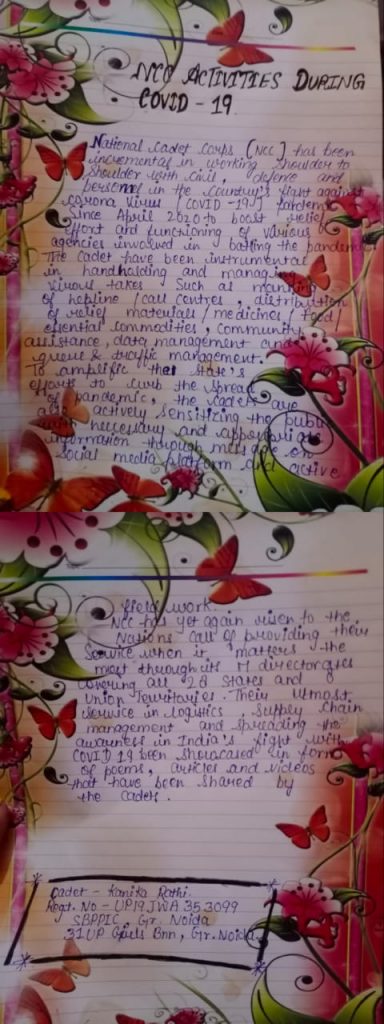 NCC ACTIVITIES DURING
COVID - 19
National Cadet Corps (NCC) has been
incremental in working shoulder to
shoulder with civil, defence and
personnel in the country's fight against
corona virus (COVID -19) pandemic
Since April 2020 to boost relief
effort and functioning of various
agencies involved in batting the pandemic
The cadet have been instrumental
in handholding and managing
various takes Such as manning
of helpline / call centres, distribution
of relief materials / medicines / food /
essential commodities, community
assistance, data management and
queue & traffic management.
To amplific the State's
efforts to curb the spread
of pandemic, the cadets are
also actively sensitizing the public
with necessary and appropriate
information through message on
social media platform and active
field work
NCC has yet again risen to the
Nations call of providing their
Service when it matters the
most through its 17 directorates
covering all 28 States and 8
Union Territories. Their utmost
service in logistics supply chain
management and spreading the
awareness in India's fight with
COVID 19 been showcased in form
of poems, articles and videos
that have been shared by
the cadets.
Cadet - Kanika Rathi
Regt. No - UP19JWA 353099
SBPPIC, Gr. Noida
31 UP Girls Bnn, Gr. Noida